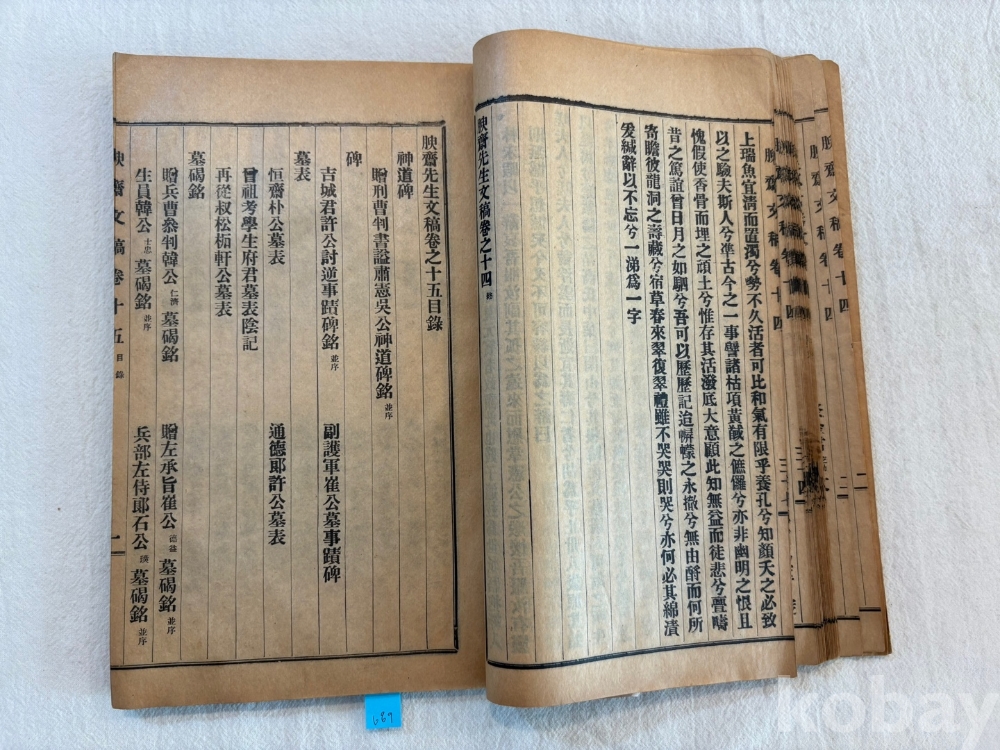 腴齋文稿卷十四
二
腴齋文稿卷十四
二
腴齋文稿卷十四
上瑞魚宜清而置濁兮勢不久活者可比和氣有限乎養孔兮知顔夭之必致
以之驗夫斯人兮準古今之一事譬諸枯項黃馘之儸兮亦非幽明之恨且
愧假使香骨而埋之頑土兮惟存其活潑底大意顧此知無益而徒悲兮亹疇
昔之篤誼曾日月之如駟兮吾可以歷歷記迨幈幪之永撤兮無由酧而何所
寄瞻彼龍洞之壽藏兮宿草春來翠復翠禮雖不哭哭則哭兮亦何必其綿漬
爰緘辭以不忘兮一涕爲一字
腴齋先生文稿卷之十四 終
腴齋先生文稿卷之十五目錄
神道碑
贈刑曹判書謚肅憲吳公神道碑銘 並序
碑
吉城君許公討逆事蹟碑銘 並序 副護軍崔公墓事蹟碑
墓表
恒齋朴公墓表 通德郞許公墓表
曾祖考學生府君墓表陰記
再從叔松栢軒公墓表
墓碣銘
贈兵曹叅判韓公 仁濟 墓碣銘 並序 贈左承旨崔公 德益 墓碣銘 並序
生員韓公 士忠 墓碣銘 並序 兵部左侍郞石公 墓碣銘 並序
腴齋文稿卷十五 目錄 一
687
kobay